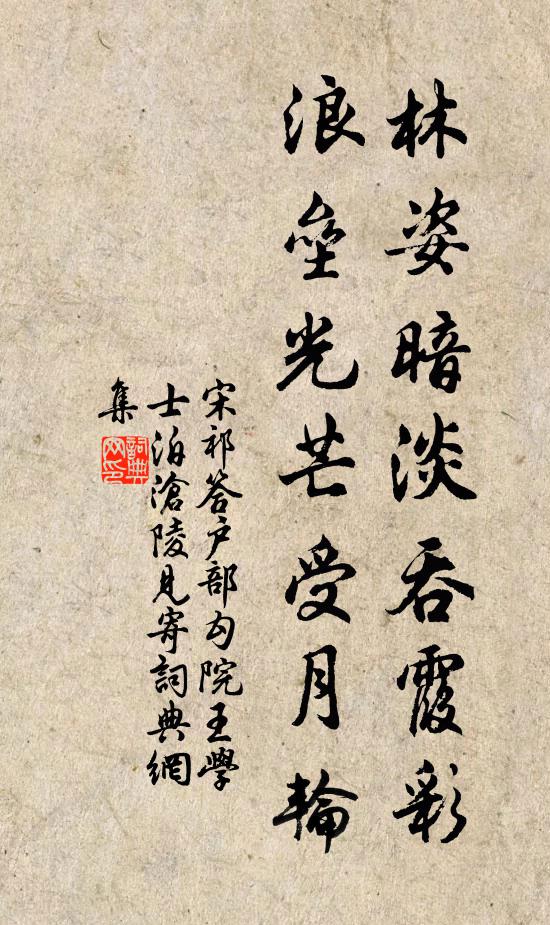 林姿暗淡吞霞彩
浪壘光芒受月輪
宋祁答户部勾院王學
士泊滄陵見寄詞典網
集
詞典
网印